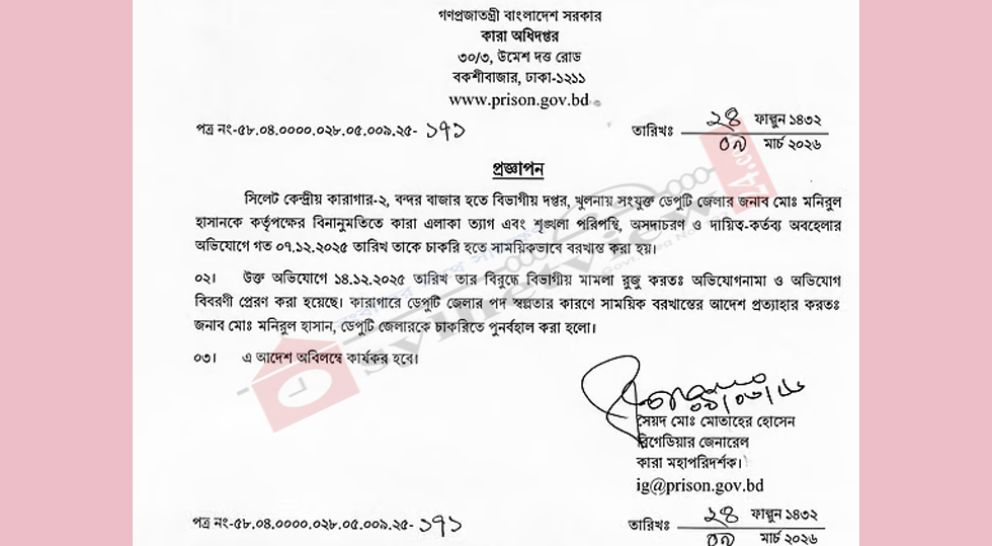 গণপ্রজাতন্ত্রী বাংলাদেশ সরকার
কারা অধিদপ্তর
৩০/৩, উমেশ দত্ত রোড
বকশীবাজার, ঢাকা-১২১১
www.prison.gov.bd
পত্র নং-৫৮.০৪.০০০০.০২৮.০৫.০০৯.২৫- ১৭১
তারিখঃ ২৪ ফাল্গুন ১৪৩২
০৯ মার্চ ২০২৬
প্রজ্ঞাপন
সিলেট কেন্দ্রীয় কারাগার-২, বন্দর বাজার হতে বিভাগীয় দপ্তর, খুলনায় সংযুক্ত ডেপুটি জেলার জনাব মোঃ মনিরুল
হাসানকে কর্তৃপক্ষের বিনানুমতিতে কারা এলাকা ত্যাগ এবং শৃঙ্খলা পরিপন্থি, অসদাচরণ ও দায়িত্ব-কর্তব্য অবহেলার
অভিযোগে গত ০৭.১২.২০২৫ তারিখ তাকে চাকরি হতে সাময়িকভাবে বরখাস্ত করা হয়।
০২। উক্ত অভিযোগে ১৪.১২.২০২৫ তারিখ তার বিরুদ্ধে বিভাগীয় মামলা রুজু করতঃ অভিযোগনামা ও অভিযোগ
বিবরণী প্রেরণ করা হয়েছে। কারাগারে ডেপুটি জেলার পদ স্বল্পতার কারণে সাময়িক বরখাস্তের আদেশ প্রত্যাহার করতঃ
জনাব মোঃ মনিরুল হাসান, ডেপুটি জেলারকে চাকরিতে পুনর্বহাল করা হলো।
০৩। এ আদেশ অবিলম্বে কার্যকর হবে।
০৯/০৩/২৬
সৈয়দ মোঃ মোতাহের হোসেন
ব্রিগেডিয়ার জেনারেল
কারা মহাপরিদর্শক।
ig@prison.gov.bd
পত্র নং-৫৮.০৪.০০০০.০২৮.০৫.০০৯.২৫- ১৭১
তারিখঃ ২৪ ফাল্গুন ১৪৩২
০৯ মার্চ ২০২৬